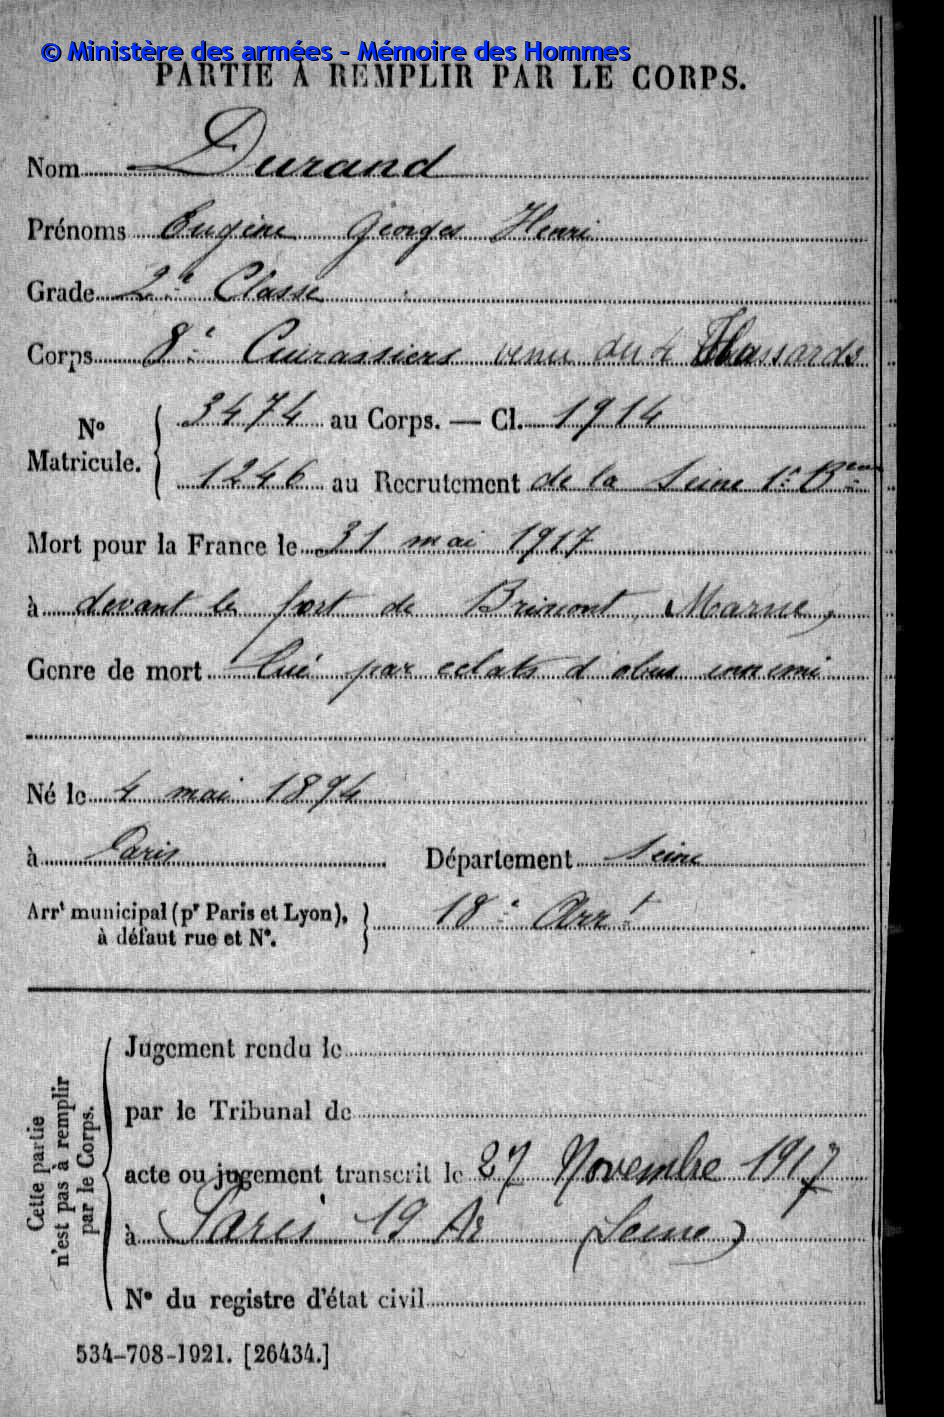 © Ministère des armées - Mémoire des Hommes
PARTIE À REMPLIR PAR LE CORPS.
Nom Durand
Prénoms Eugène Georges Henri
Grade 2e Classe
Corps 8e Cuirassiers venu du 4 Hussards
No Matricule. { 3474 au Corps. — Cl. 1914
1246 au Recrutement de la Seine 1er Beau
Mort pour la France le 31 mai 1917
à devant le fort de Brimont, Marne,
Genre de mort Tué par eclats d'obus ennemi
Né le 4 mai 1894
à Paris Département Seine
Arrt municipal (pr Paris et Lyon), à défaut rue et No. } 18e Arrt
Cette partie n'est pas à remplir par le Corps.
Jugement rendu le
par le Tribunal de
acte ou jugement transcrit le 27 Novembre 1917
à Paris 19 Ar (Seine)
No du registre d'état civil
534-708-1921. [26434.]